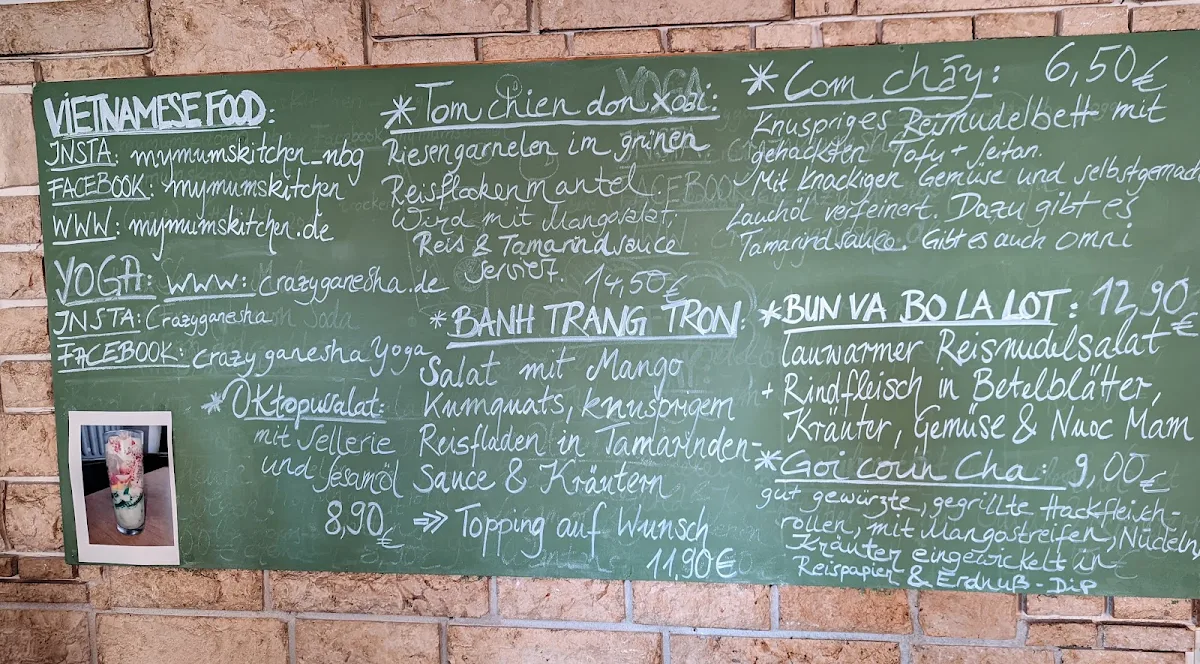 VIETNAMESE FOOD:
INSTA: mymumskitchen_nbg
FACEBOOK: mymumskitchen
WWW: mymumskitchen.de
YOGA: WWW: Crazyganesha.de
INSTA: Crazyganesha
FACEBOOK: crazyganesha Yoga
* Oktopusalat:
mit Sellerie
und Sesamöl
8,90€
* Tom chien don xoai:
Riesengarnelen im grünen
Reisflocken mantel
Wird mit Mangosalat,
Reis & Tamarindsauce
serviert. 14,50€
* BANH TRANG TRON:
Salat mit Mango
Kumquats, knusprigem
Reisfladen in Tamarinden-
Sauce & Kräutern
=> Topping auf Wunsch
11,90€
* Com cháy: 6,50€
Knuspriges Reisnudelbett mit
gehackten Tofu + Seitan.
Mit Knackigen Gemüse und selbstgemach
Lauchöl verfeinert. Dazu gibt es
Tamarindsauce. Gibt es auch omni
* BUN VA BO LA LOT: 12,90€
Lauwarmer Reisnudelsalat
+ Rindfleisch in Betelblätter,
Kräuter, Gemüse & Nuoc Mam
* Goi coun Cha: 9,00€
gut gewürzte, gegrillte Hackfleisch-
rollen, mit Mangostreifen, Nudeln
Kräuter eingewickelt in
Reispapier & Erdnuß-Dip